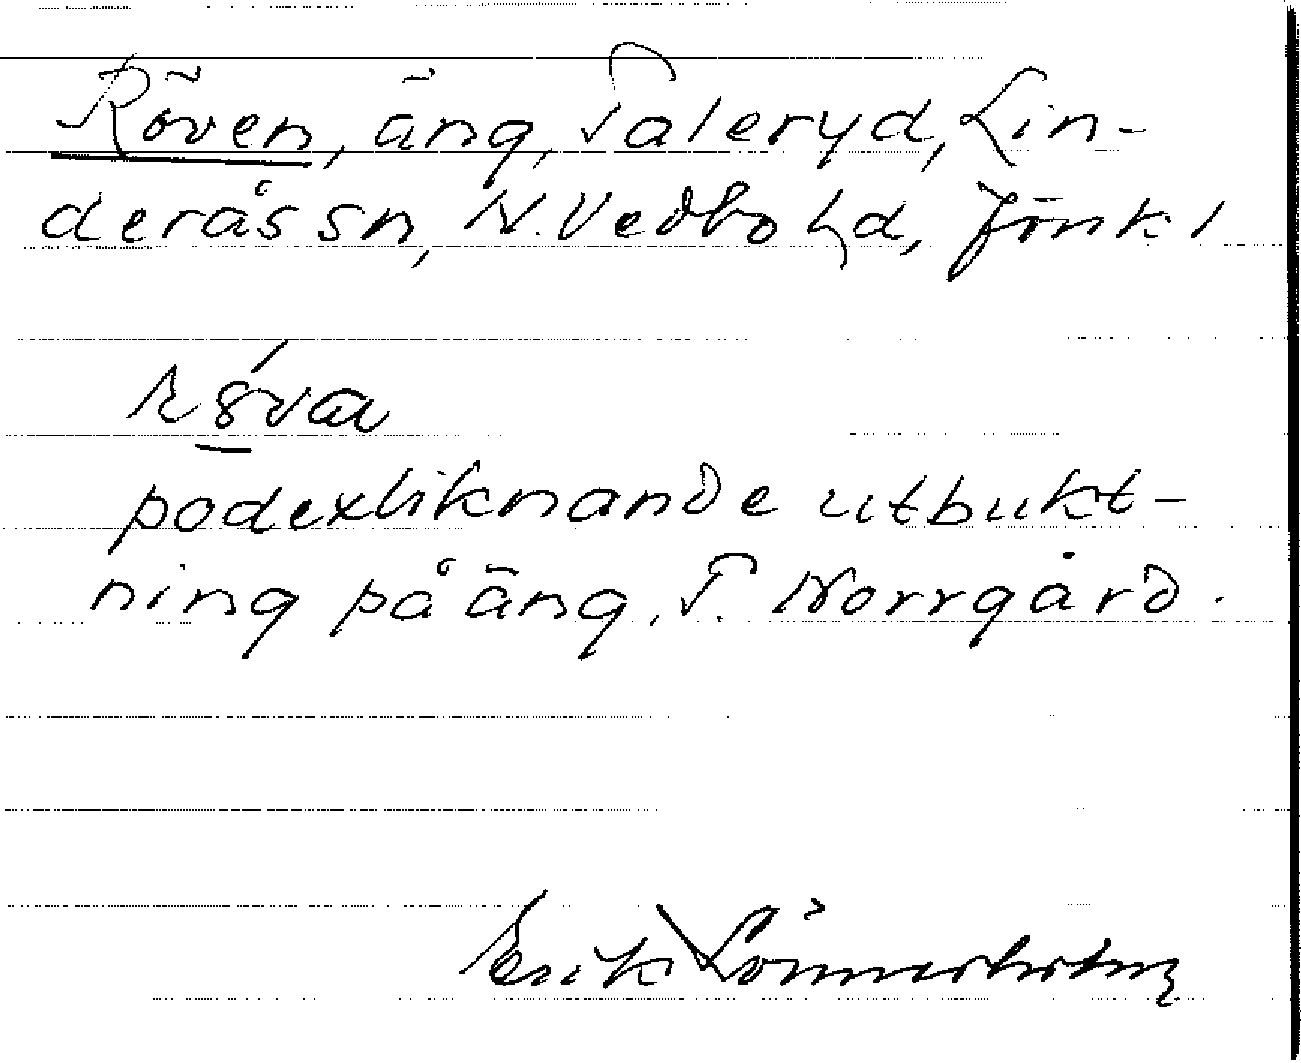 Röven, äng, Taleryd, Lin-
derås sn, N. Vedbo hd, Jönk l
r8́va
podexliknande utbukt-
ning på äng, T. Norrgård.
Erik Lönnerholm